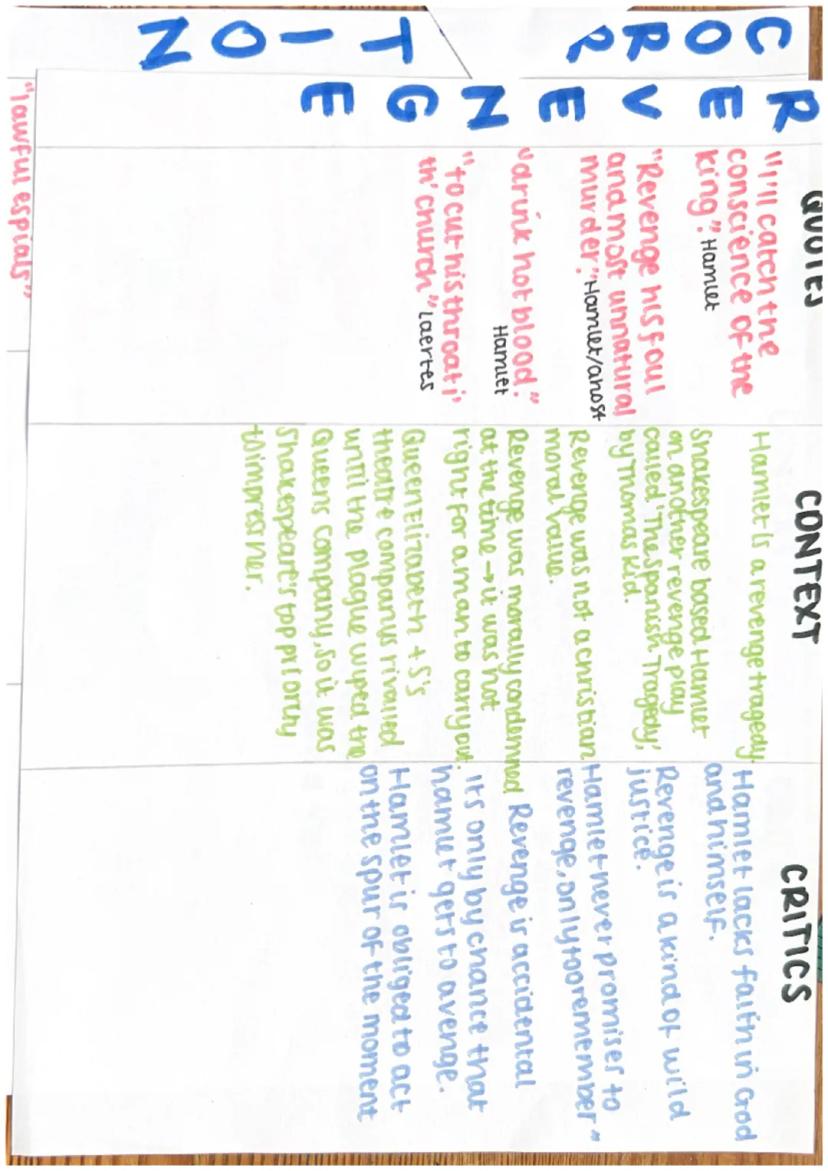 CORRP TION
REVENGE
QUOTES
"I'll catch the
conscience of the
king". Hamlet
"Revenge his foul
and most unnatural
murder." Hamlet/Ghost
"drink hot blood."
Hamlet
"to cut his throat i'
th' church" Laertes
"lawful espials"
CONTEXT
Hamlet is a revenge tragedy.
Shakespeare based Hamlet
on another revenge play
called 'The Spanish Tragedy',
by Thomas Kid.
Revenge was not a christian
moral value.
Revenge was morally condemned
at the time → it was not
right for a man to carry out.
Queen Elizabeth + S's
theatre companys rivalled
until the plague wiped the
Queens company, so it was
Shakespeare's top priority
to impress her.
CRITICS
Hamlet lacks faith in God
and himself.
Revenge is a kind of wild
justice.
Hamlet never promises to
revenge, only too remember"
Revenge is accidental
it's only by chance that
hamlet gets to avenge.
Hamlet is obliged to act
on the spur of the moment